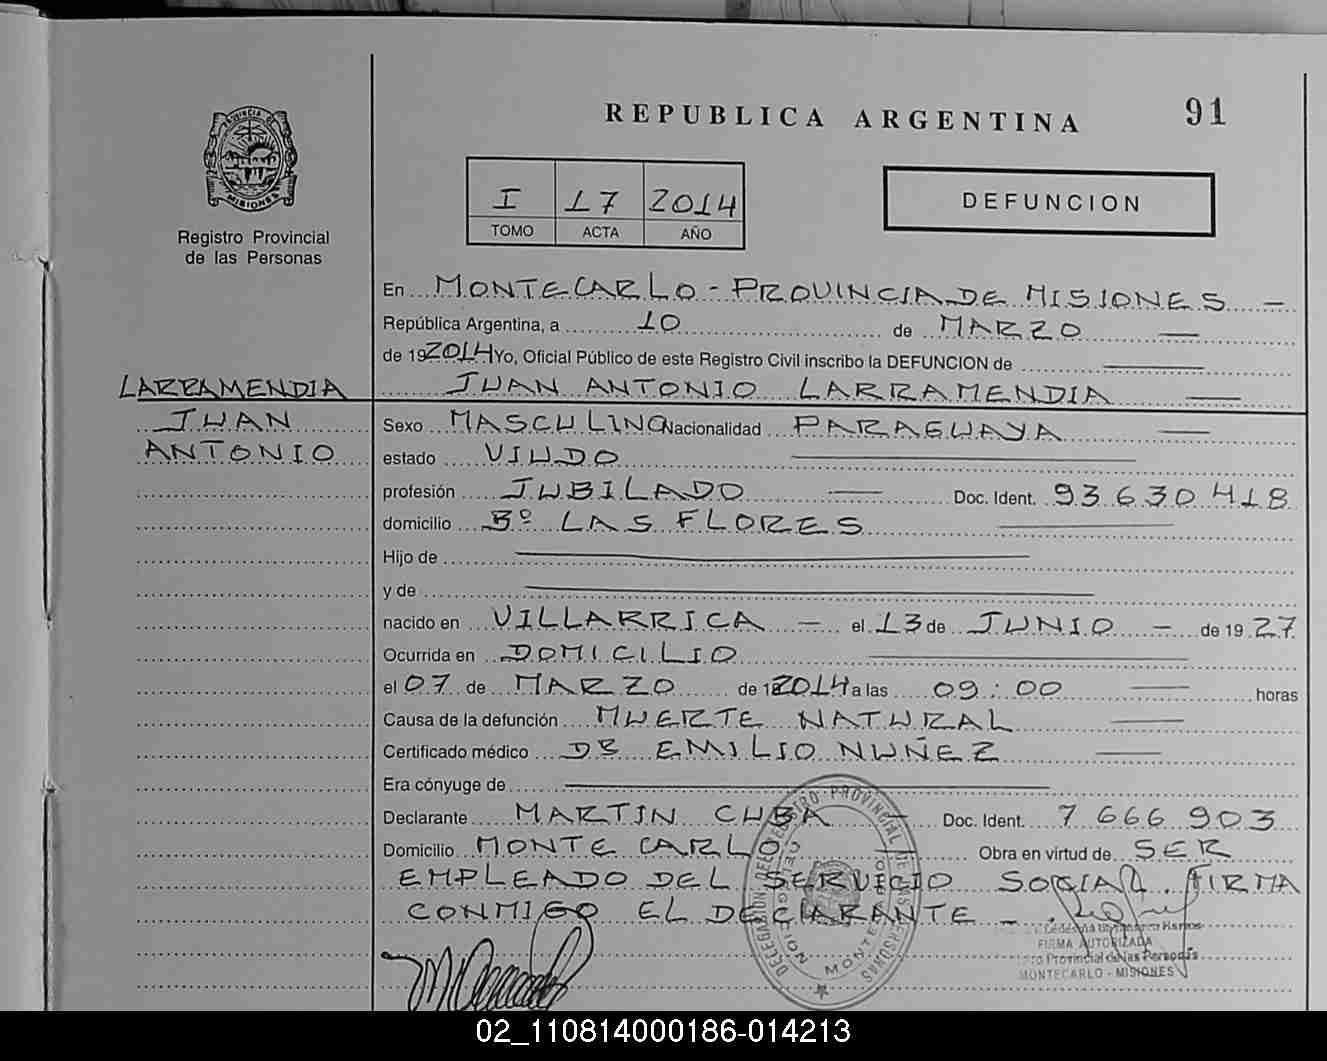 REPUBLICA ARGENTINA
91
PROVINCIA DE
MISIONES
Registro Provincial
de las Personas
I 17 2014
TOMO ACTA AÑO
DEFUNCION
En MONTECARLO - PROVINCIA DE MISIONES -
República Argentina, a 10 de MARZO
de 19 2014 Yo, Oficial Público de este Registro Civil inscribo la DEFUNCION de
LARRAMENDIA
JUAN
ANTONIO
JUAN ANTONIO LARRAMENDIA
Sexo MASCULINO Nacionalidad PARAGUAYA
estado VIUDO
profesión JUBILADO Doc. Ident. 93 630 418
domicilio Bº LAS FLORES
Hijo de
y de
nacido en VILLARRICA - el 13 de JUNIO - de 19 27
Ocurrida en DOMICILIO
el 07 de MARZO de 1 2014 a las 09:00 horas
Causa de la defunción MUERTE NATURAL
Certificado médico DR EMILIO NUÑEZ
Era cónyuge de
Declarante MARTIN CUBA - Doc. Ident. 7 666 903
Domicilio MONTE CARLO - Obra en virtud de SER
EMPLEADO DEL SERVICIO SOCIAL. FIRMA
CONMIGO EL DECLARANTE -.
DELEGACION DEL REGISTRO PROVINCIAL DE LAS PERSONAS
MONTECARLO
FIRMA AUTORIZADA
Provincial de las Personas
MONTECARLO - MISIONES
02_110814000186-014213